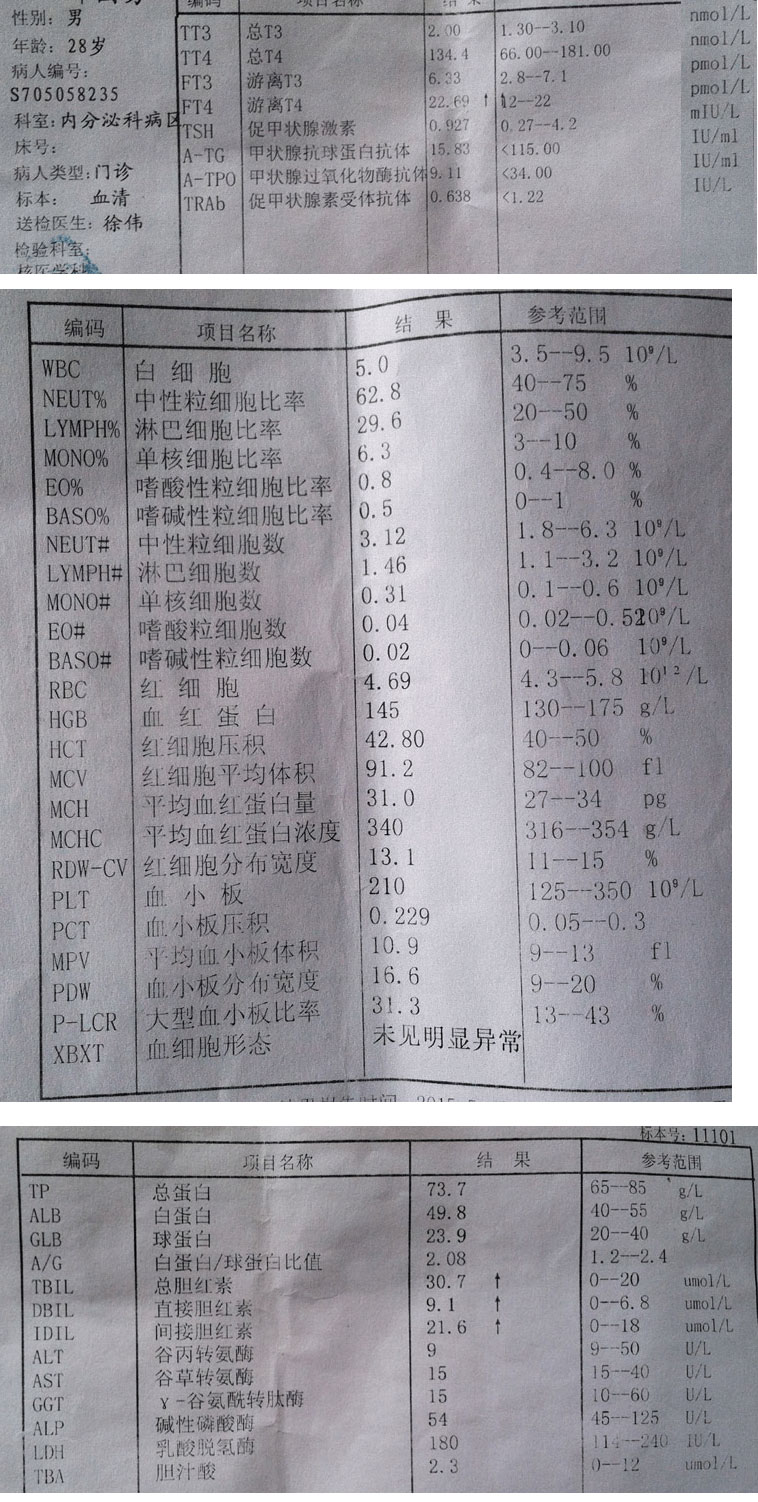 编码 项目名称 结 果
性别: 男
年龄: 28岁
病人编号:
S705058235
科室: 内分泌科病区
床号:
病人类型: 门诊
标本: 血清
送检医生: 徐伟
检验科室:
核医学科
TT3 总T3 2.00 1.30--3.10 nmol/L
TT4 总T4 134.4 66.00--181.00 nmol/L
FT3 游离T3 6.33 2.8--7.1 pmol/L
FT4 游离T4 22.69 ↑ 12--22 pmol/L
TSH 促甲状腺激素 0.927 0.27--4.2 mIU/L
A-TG 甲状腺抗球蛋白抗体 15.83 <115.00 IU/ml
A-TPO 甲状腺过氧化物酶抗体 9.11 <34.00 IU/ml
TRAb 促甲状腺素受体抗体 0.638 <1.22 IU/L
编码 项目名称 结 果 参考范围
WBC 白 细 胞 5.0 3.5--9.5 10⁹/L
NEUT% 中性粒细胞比率 62.8 40--75 %
LYMPH% 淋巴细胞比率 29.6 20--50 %
MONO% 单核细胞比率 6.3 3--10 %
EO% 嗜酸性粒细胞比率 0.8 0.4--8.0 %
BASO% 嗜碱性粒细胞比率 0.5 0--1 %
NEUT# 中性粒细胞数 3.12 1.8--6.3 10⁹/L
LYMPH# 淋巴细胞数 1.46 1.1--3.2 10⁹/L
MONO# 单核细胞数 0.31 0.1--0.6 10⁹/L
EO# 嗜酸粒细胞数 0.04 0.02--0.5210⁹/L
BASO# 嗜碱性粒细胞数 0.02 0--0.06 10⁹/L
RBC 红 细 胞 4.69 4.3--5.8 10¹²/L
HGB 血 红 蛋 白 145 130--175 g/L
HCT 红细胞压积 42.80 40--50 %
MCV 红细胞平均体积 91.2 82--100 fl
MCH 平均血红蛋白量 31.0 27--34 pg
MCHC 平均血红蛋白浓度 340 316--354 g/L
RDW-CV 红细胞分布宽度 13.1 11--15 %
PLT 血 小 板 210 125--350 10⁹/L
PCT 血小板压积 0.229 0.05--0.3
MPV 平均血小板体积 10.9 9--13 fl
PDW 血小板分布宽度 16.6 9--20 %
P-LCR 大型血小板比率 31.3 13--43 %
XBXT 血细胞形态 未见明显异常
标本号: 11101
编码 项目名称 结 果 参考范围
TP 总蛋白 73.7 65--85 g/L
ALB 白蛋白 49.8 40--55 g/L
GLB 球蛋白 23.9 20--40 g/L
A/G 白蛋白/球蛋白比值 2.08 1.2--2.4
TBIL 总胆红素 30.7 ↑ 0--20 umol/L
DBIL 直接胆红素 9.1 ↑ 0--6.8 umol/L
IDIL 间接胆红素 21.6 ↑ 0--18 umol/L
ALT 谷丙转氨酶 9 9--50 U/L
AST 谷草转氨酶 15 15--40 U/L
GGT γ-谷氨酰转肽酶 15 10--60 U/L
ALP 碱性磷酸酶 54 45--125 U/L
LDH 乳酸脱氢酶 180 114--240 IU/L
TBA 胆汁酸 2.3 0--12 umol/L